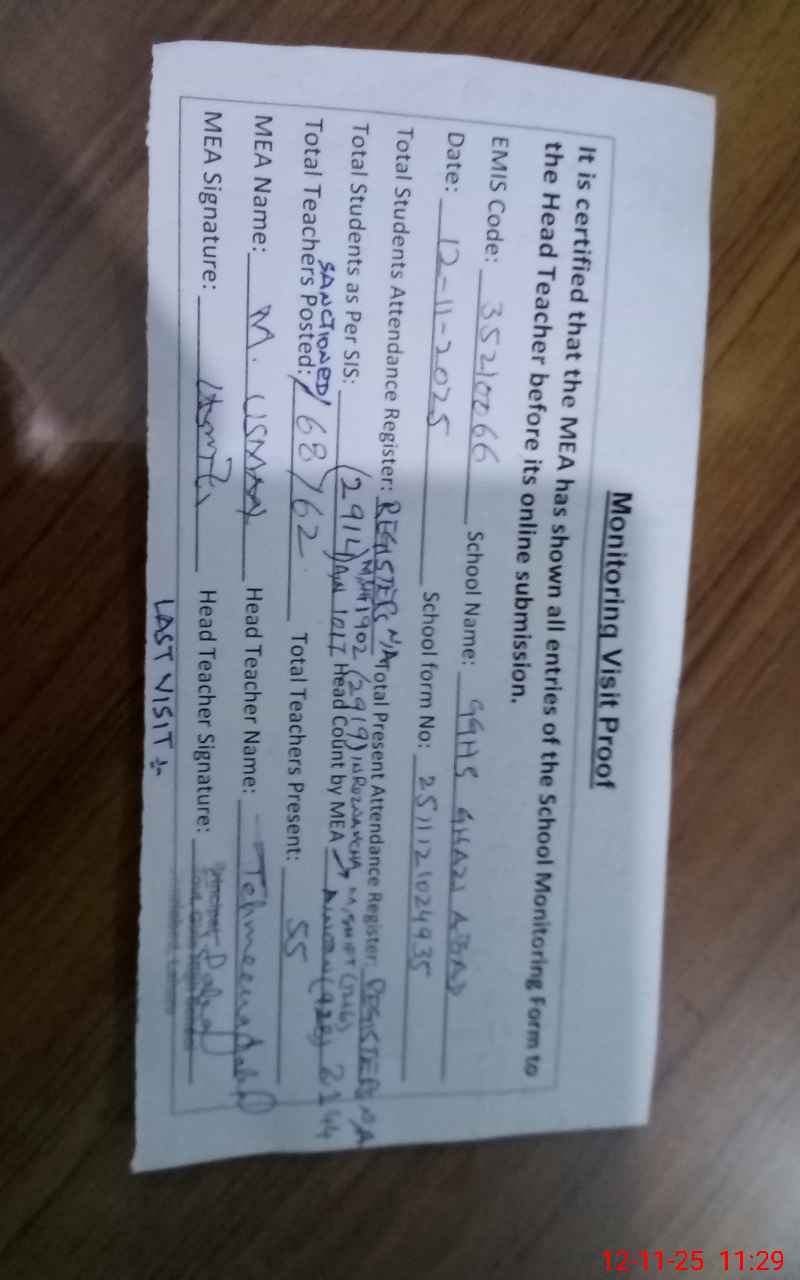 Monitoring Visit Proof
It is certified that the MEA has shown all entries of the School Monitoring Form to
the Head Teacher before its online submission.
EMIS Code: 35210066 School Name: GGHS GHAZI ABAD
Date: 12-11-2025 School form No: 2511121024935
Total Students Attendance Register: REGISTER N/A Total Present Attendance Register: REGISTER N/A
1902 (2919) M/SHIFT
Total Students as Per SIS: (2914) Head Count by MEA → 2144
SANCTIONED/
Total Teachers Posted: /68/62 Total Teachers Present: 55
MEA Name: M. USMAN Head Teacher Name: Tehmeena
MEA Signature: Head Teacher Signature:
Principal
LAST VISIT :-
12-11-25 11:29